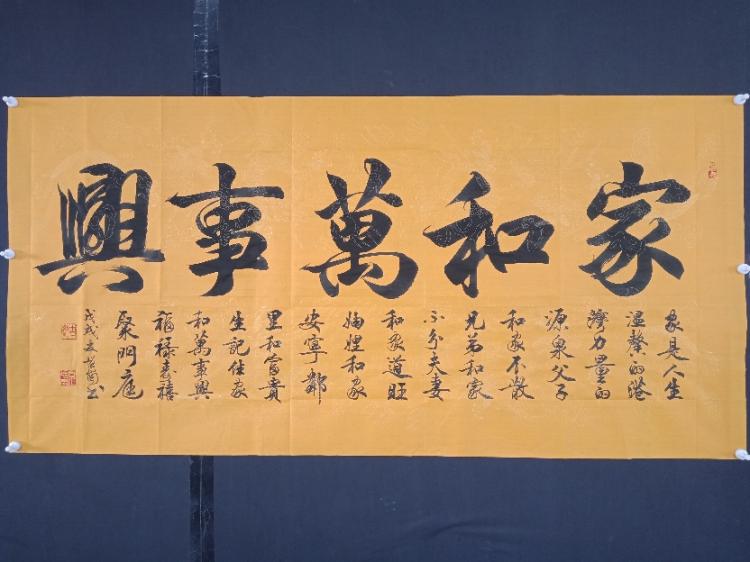 家和萬事興
家是人生
温馨的港
灣力量的
源泉父子
和家不散
兄弟和家
不分夫妻
和家道旺
妯娌和家
安寧鄰
里和富貴
生記住家
和萬事興
福禄壽禧
聚門庭
戊戌
书